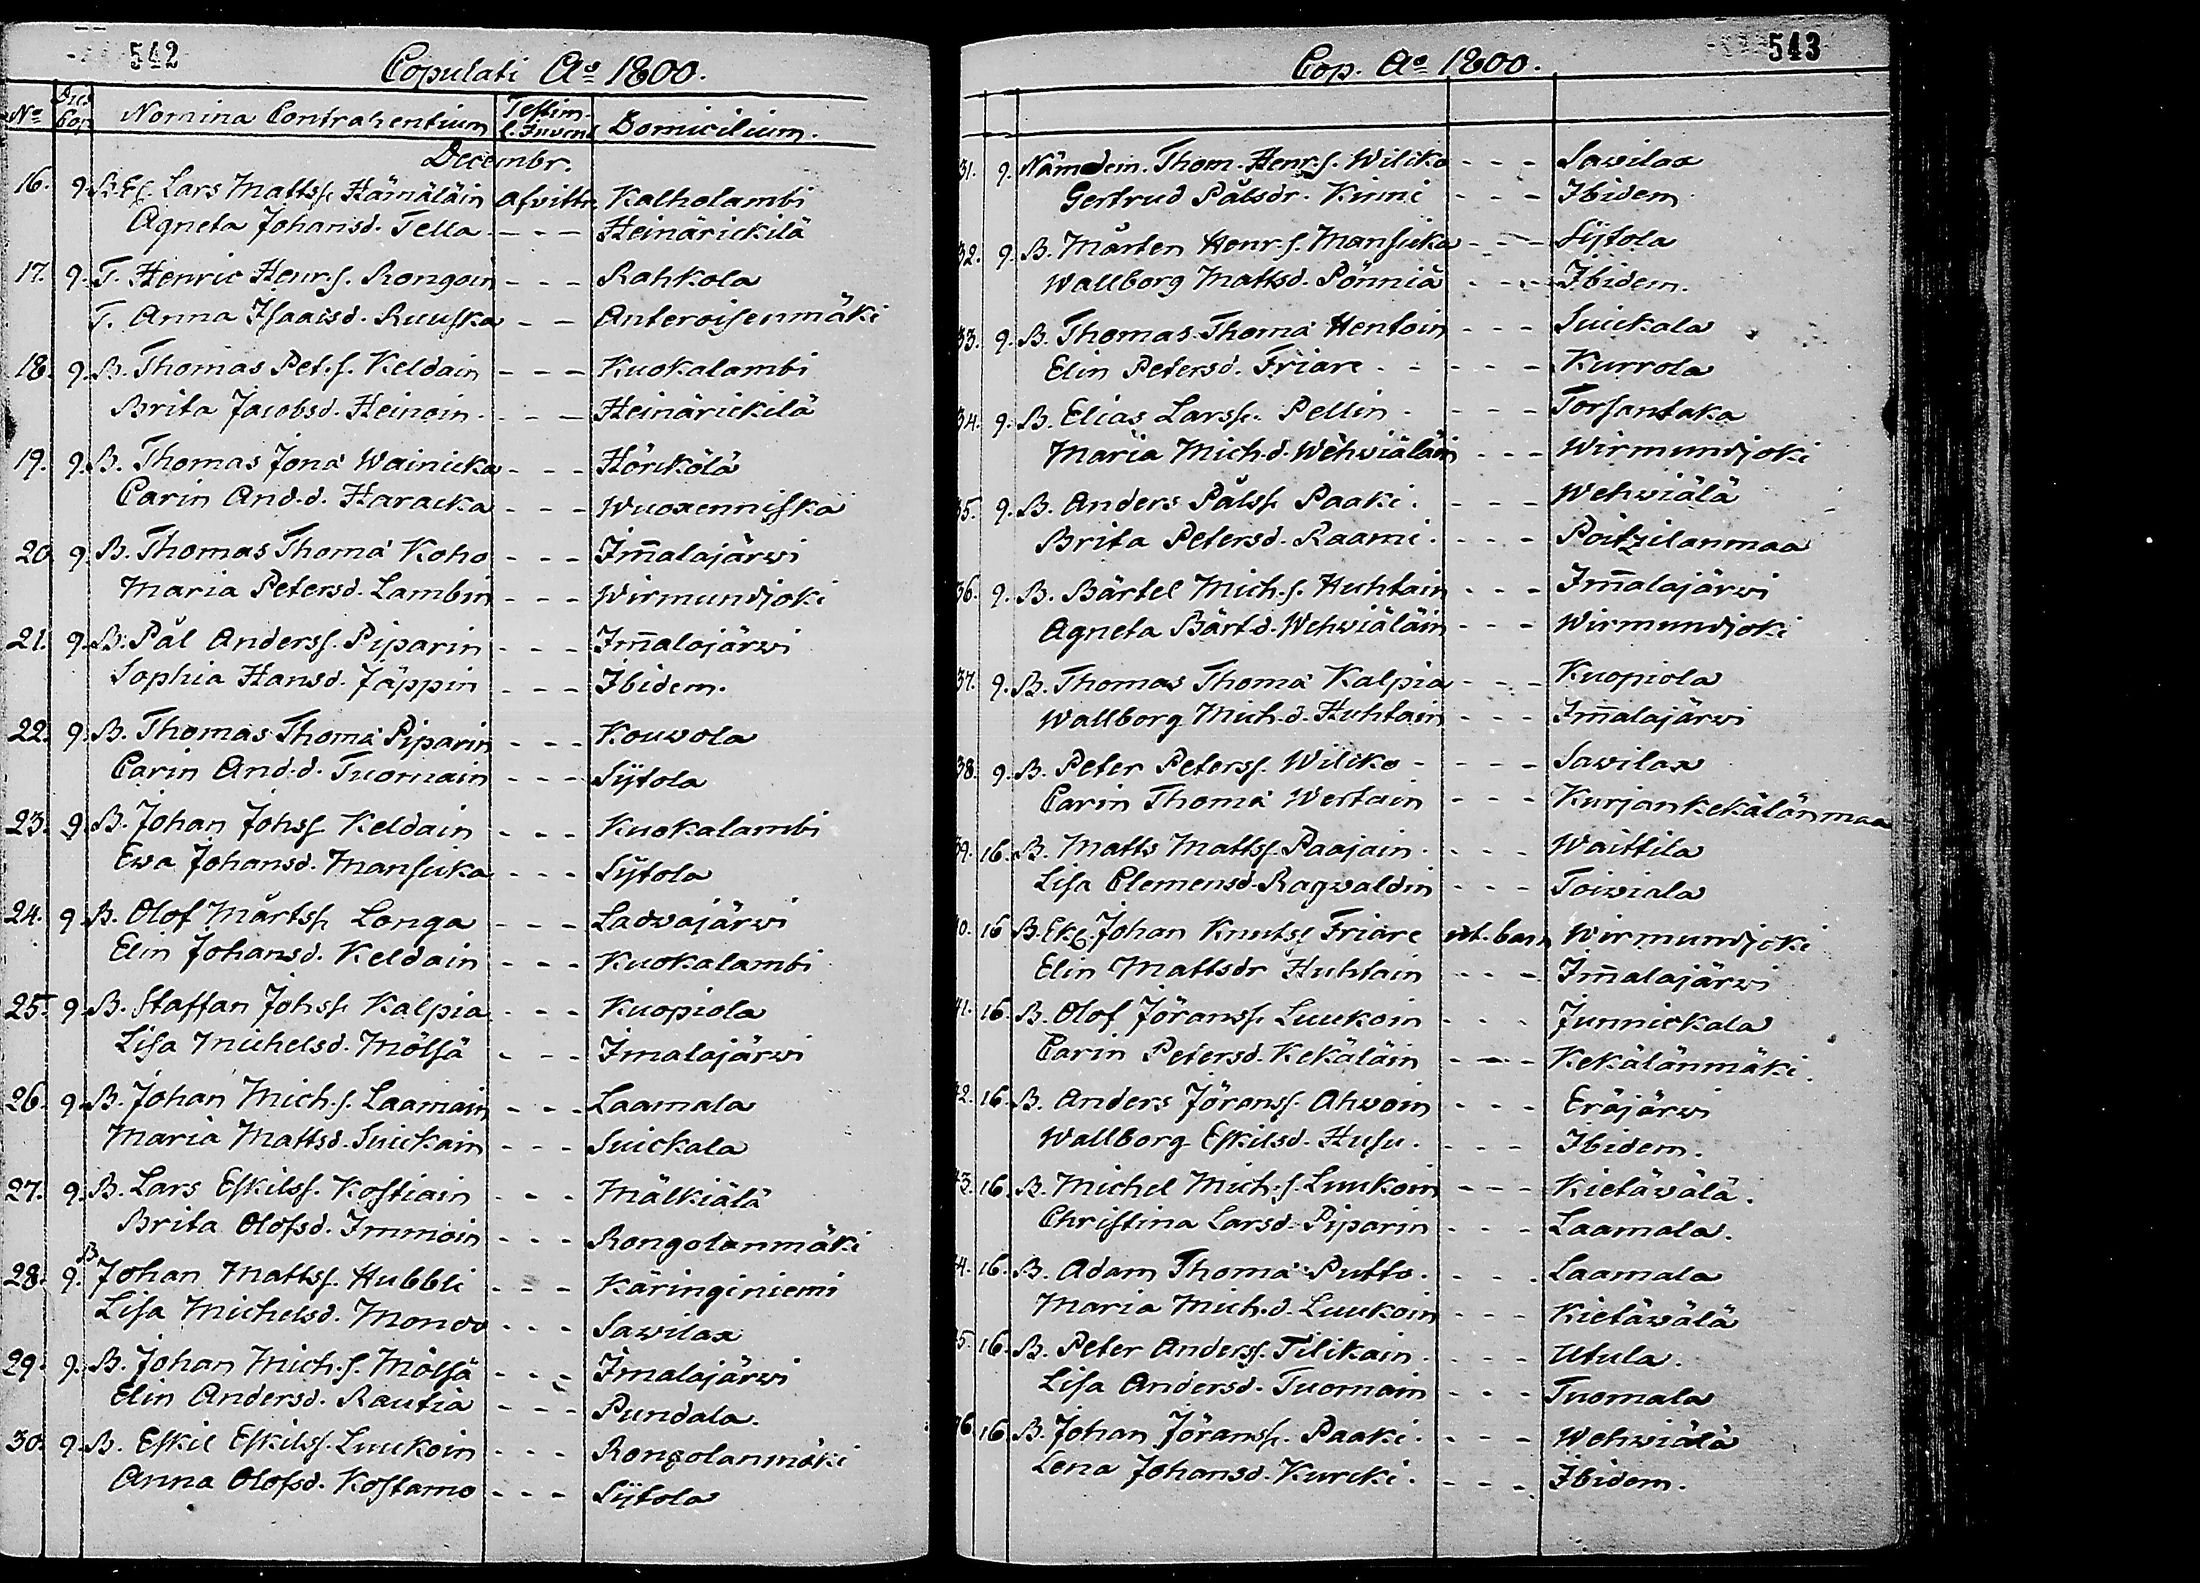 542
Copulati Ao 1800.
No Dies Cop. Nomina Contrahentium Testim. l. Invent. Domicilium.
Decembr.
16. 9. B. Ek. Lars Mattss. Hämäläin afvittr. Kalholambi
Agneta Johansd. Tella - - - Heinärickilä
17. 9. T. Henric Henr.s. Rongoin - - - Rahkola
T. Anna Isaacsd. Ruuska - - Anteroisenmäki
18. 9. B. Thomas Pet.s. Keldain - - - Kuokalambi
Brita Jacobsd. Heinoin - - - Heinärickilä
19. 9. B. Thomas Jona Wainicka - - - Hörckölä
Carin And.d. Haracka - - - Wuoxenniska
20 9. B. Thomas Thoma Koho - - - Im̄alajärwi
Maria Petersd. Lambin - - - Wirmundjoki
21. 9. B. Pål Anderss. Piparin - - - Im̄alajärwi
Sophia Hansd. Jäppin - - - Ibidem.
22. 9. B. Thomas Thoma Piparin - - - Kouwola
Carin And.d. Tuomain - - - Sijtola
23. 9. B. Johan Johss. Keldain - - - Kuokalambi
Ewa Johansd. Mansicka - - - Sijtola
24. 9 B. Olof Mårtss. Longa - - - Ladwajärwi
Elin Johansd. Keldain - - - Kuokalambi
25. 9 B. Staffan Johss. Kalpia - - - Kuopiola
Lisa Michelsd. Mölsä - - - Imalajärwi
26. 9. B. Johan Mich.s. Laamain - - - Laamala
Maria Mattsd. Suickain - - - Suickala
27. 9. B. Lars Eskilss. Kostiain - - - Mälkiälä
Brita Olofsd. Immoin - - - Rongolanmäki
28. 9. B Johan Mattss. Hubbli - - - Käringiniemi
Lisa Michelsd. Mondo - - - Sawilax
29. 9. B. Johan Mich.s. Mölsä - - - Imalajärwi
Elin Andersd. Rautia - - - Pundala.
30. 9. B. Eskil Eskilss. Luukoin - - - Rongolanmäki
Anna Olofsd. Kostamo - - - Sijtola
543
Cop. Ao 1800.
31. 9. Nämdem. Thom. Henr.s. Wilska - - - Sawilax
Gertrud Pålsdr. Kinni - - - Ibidem
32. 9. B. Mårten Henr.s. Mansicka - - - Sijtola
Wallborg Mattsd. Pönniä - - - Ibidem.
33. 9. B. Thomas Thoma Hentoin - - - Suickala
Elin Petersd. Friare - - - - - Kurrola
34. 9. B. Elias Larss. Pellin - - - - Torsantaka
Maria Mich.d. Wehwiäläin - - - Wirmundjoki
35. 9. B. Anders Pålss. Paaki. - - - Wehwiälä
Brita Petersd. Raami. - - - Poitzilanmaa
36. 9. B. Bärtel Mich.s. Huhtain - - - Im̄alajärwi
Agneta Bärt.d. Wehwiäläin - - - Wirmundjoki
37. 9. B. Thomas Thoma Kalpia - - - Kuopiola
Wallborg Mich.d. Huhtain - - - Im̄alajärwi
38. 9. B. Peter Peterss. Wilska - - - - Sawilax
Carin Thoma Wertain - - - Kurjankekälänmaa
39. 16. B. Matts Mattss. Paajain - - - Waittila
Lisa Clemensd. Ragwaldin - - - Toiwiala
40. 16 B. Ek. Johan Knutss. Friare ut. barn Wirmundjoki
Elin Mattsdr Huhtain - - - Im̄alajärwi
41. 16. B. Olof Jöranss. Luukoin - - - Junnickala
Carin Petersd. Kekäläin - - - Kekälänmäki.
42. 16. B. Anders Jöranss. Ahwoin - - - Eräjärwi
Wallborg Eskilsd. Husu. - - - Ibidem.
43. 16. B. Michel Mich.s. Luukoin - - - Kietäwälä.
Christina Larsd. Piparin - - - Laamala.
44. 16. B. Adam Thoma Putto. - - - Laamala
Maria Mich.d. Luukoin - - - Kietäwälä
45. 16. B. Peter Anderss. Tilikain. - - - Utula.
Lisa Andersd. Tuomain - - - Tuomala
46. 16 B. Johan Jöranss. Paaki. - - - Wehwiälä
Lena Johansd. Kurcki. - - - Ibidem.